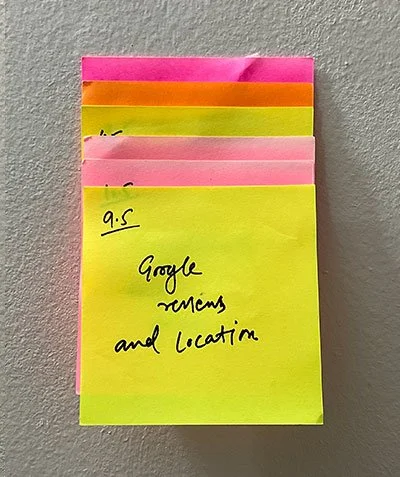 9.5
Google
reviews
and location